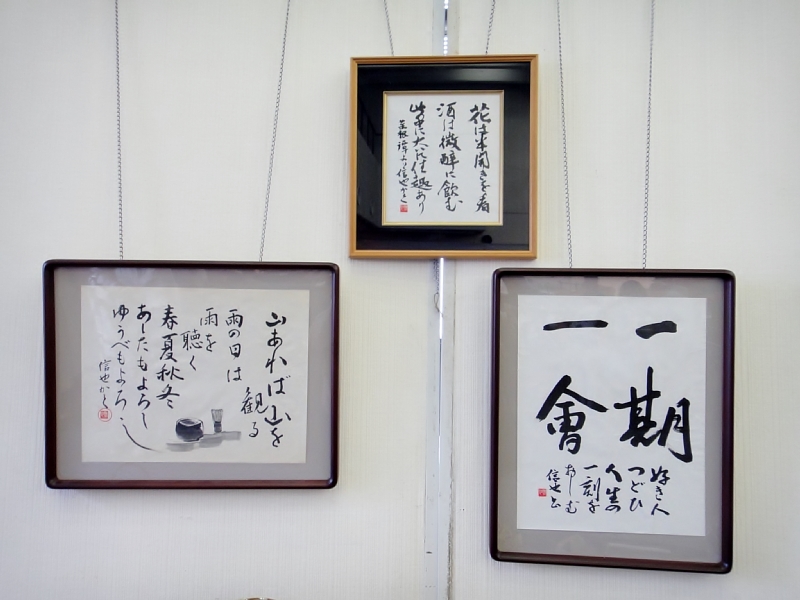 花は半開きを看
酒は微醉に飲む
此中に大いに佳趣あり
菜根譚より信也かく
山あれば山を
観る
雨の日は
雨を
聴く
春夏秋冬
あしたもよろし
ゆうべもよろし
信也かく
一期
一會
好き人
つどひ
人生の
一刻を
おしむ
信也書